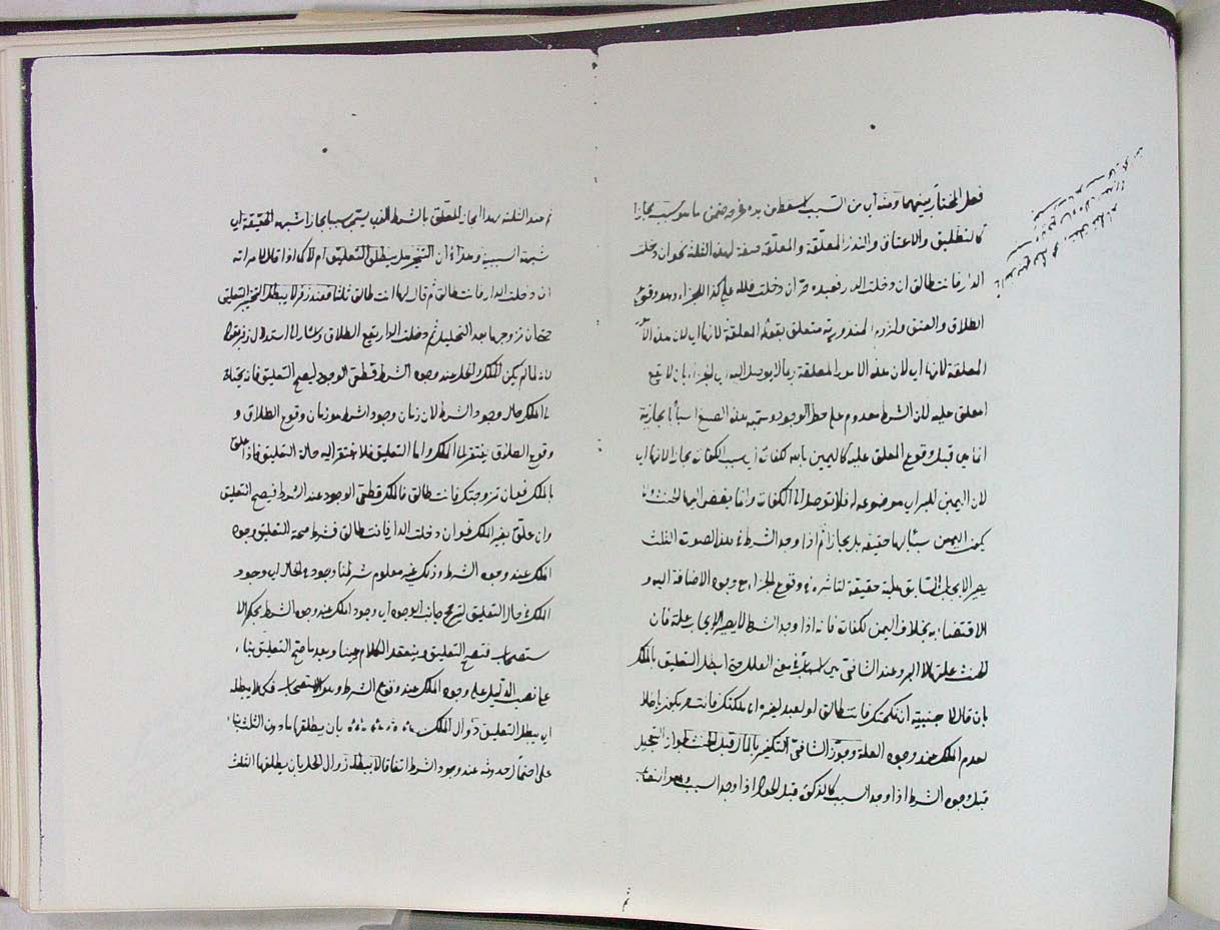 فعل المختار بينهما ومنه اى من السبب ما هو سبب مجازا
كالتطليق والاعتاق والنذر المعلقة والمعلقة صفة لهذه الثلثة نحو ان دخلت
الدار فانت طالق ان دخلت الدار فعبده حر ان دخلت فلله على كذا للجزاء وهو وقوع
الطلاق والعتق ولزوم المنذور به متعلق بقوله المعلقة لانها اى لان هذه
المعلقة لانها اى لان هذه الامور المعلقة ربما لا يوصل اليه اى الجزاء بان لا يقع
المعلق عليه لان الشرط معدوم على خطر الوجود وتسمية هذه الصيغ اسبابا مجازية
انما هى قبل وقوع المعلق عليه كاليمين بالله لكفارة اى سبب الكفارة مجازا لانها اى
لان اليمين للبر اى موضوعة له فلا توصل الى الكفارة وانما يفضى اليها الحنث ولا
يكون اليمين سببا لها حقيقة بل مجازا ثم اذا وجد الشرط فى هذه الصور الثلث
يصير الايجاب السابق علة حقيقة لتأثيره فى وقوع الجزاء مع وجود الاضافة اليه و
الاقتضاء به بخلاف اليمين لكفارة فانه اذا وجد الشرط لا يصير الايجاب علة فان
الحنث علتها لا البر وعند الشافعى هى اسباب فى معنى العلل حتى ابطل التعليق بالملك
بان قال لاجنبية ان نكحتك فانت طالق او لعبد لغيره ان ملكتك فانت حر يكون باطلا
لعدم الملك عند وجود العلة وجوز الشافعى التكفير بالمال قبل الحنث لجواز التعجيل
قبل وجود الشرط اذا وجد السبب كالزكوة قبل الحول اذا وجد السبب وهو النصاب
ثم عند الثلثة لهذا المجاز المعلق بالشرط الذى يسمى سببا مجازا شبهة الحقيقة اى
شبهة السببية وهذا فى ان التنجيز هل يبطل التعليق ام لا كما اذا قال لامرأته
ان دخلت الدار فانت طالق ثم قال لها انت طالق ثلثا فعند زفر لا يبطل التنجيز التعليق
حتى ان تزوجها بعد التحليل ثم دخلت الدار يقع الطلاق واشار الى استدلال زفر بقوله
لانه لما لم يكن الملك والحل عند وجود الشرط قطعى الوجود ليصح التعليق فانه يحتاج
الى الملك حال وجود الشرط لان زمان وجود الشرط هو زمان وقوع الطلاق و
وقوع الطلاق يفتقر الى الملك واما التعليق فلا يفتقر اليه حالة التعليق فاذا علق
بالملك نحو ان تزوجتك فانت طالق فالملك قطعى الوجود عند الشرط فيصح التعليق
وان علق بغير الملك نحو ان دخلت الدار فانت طالق فشرط صحة التعليق وجود
الملك عند وجود الشرط وذلك غير معلوم شرطنا وجوده فى الحال اى وجود
الملك فى حال التعليق ليترجح جانب الوجود اى وجود الملك عند وجود الشرط بحكم الا
ستصحاب فنصح التعليق وينعقد الكلام يمينا وبعد ما صح التعليق بناء
على نصب الدليل على وجود الملك عند وقوع الشرط وهو الاستصحاب فكما لا يبطله
اى يبطل التعليق زوال الملك بان يطلقها ما دون الثلث بناء
على احتمال حدوثه عند وجود الشرط اتفاقا لا يبطله زوال الحل بان يطلقها الثلث